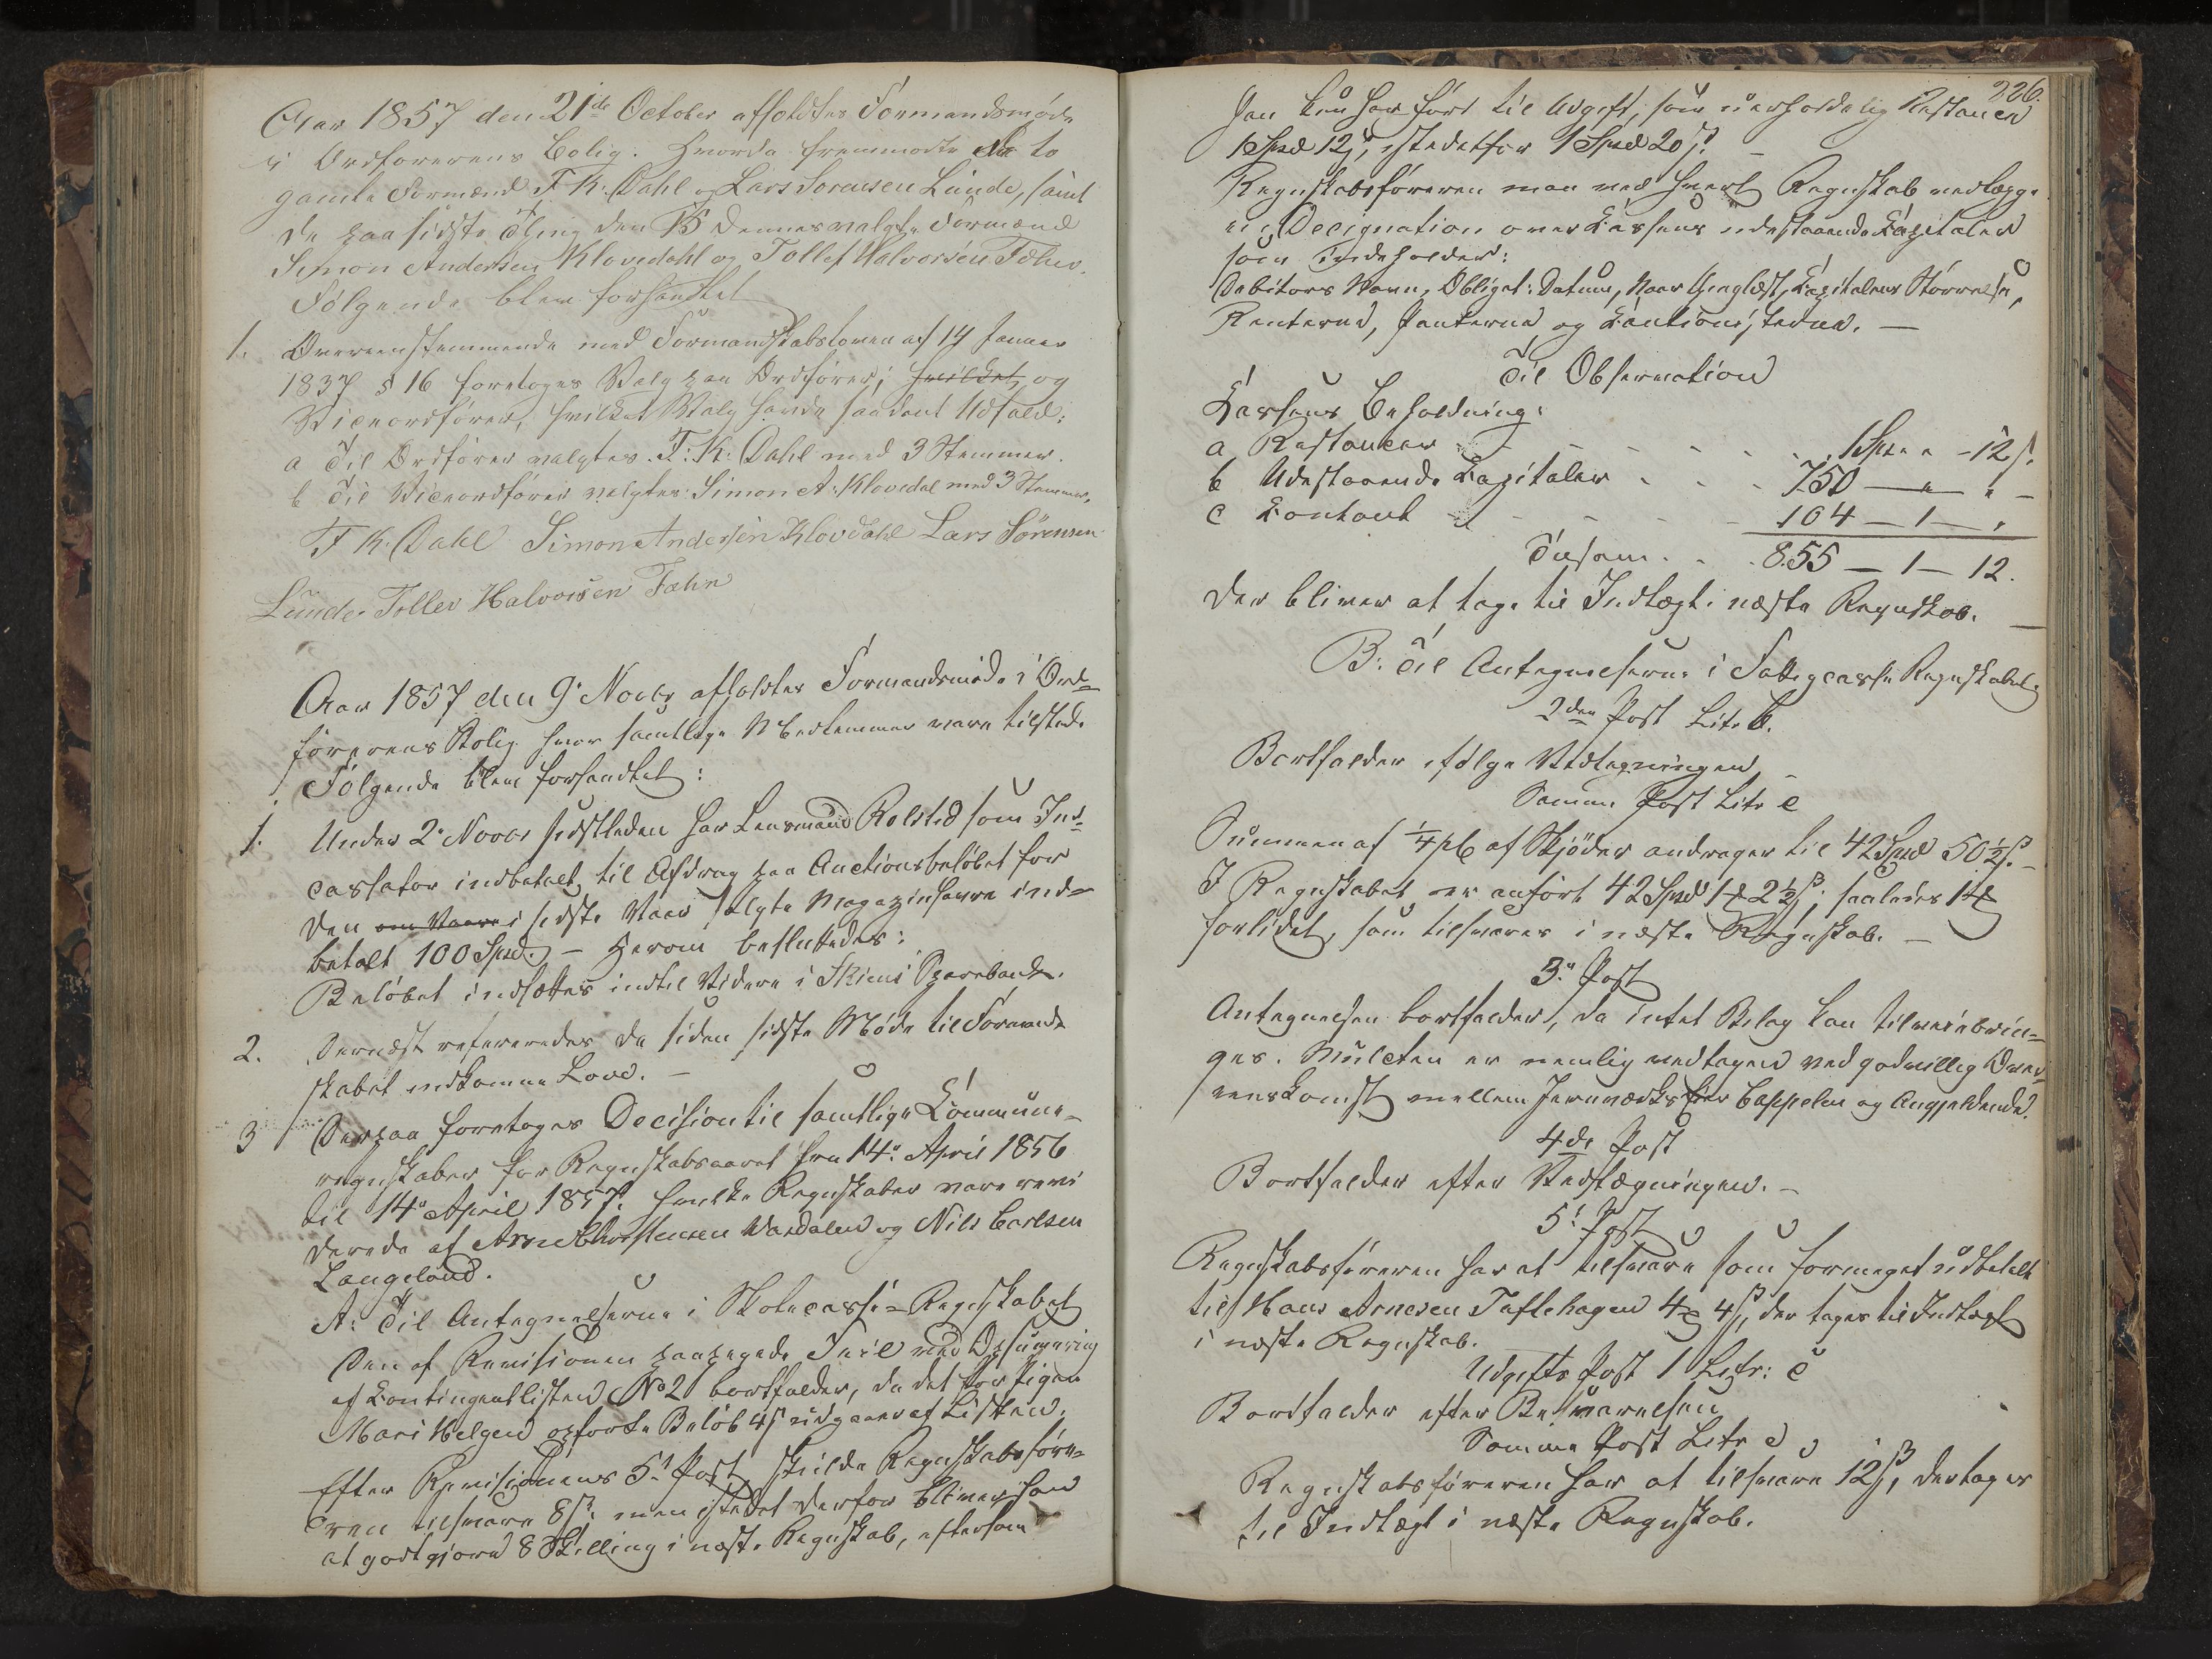 Aar 1857 den 21de October afholdtes Formandsmøde
i Ordførerens Bolig. Hvorda fremmødte de to
gamle Formænd F. K. Dahl og Lars Sørensen Lunde, samt
de paa sidste Thing den 15 dennes valgte Formænd
Simon Andersen Klovedahl og Tollef Halvorsen Fæhn.
Følgende blev forhandlet
1. Overeensstemmende med Formandskabsloven af 14 Januar
1837 § 16 foretoges Valg paa Ordfører, hvilket og
Viceordfører, hvilket Valg havde saadant Udfald:
a Til Ordfører valgtes F: K: Dahl med 3 Stemmer.
b Til Viceordfører valgtes Simon A: Klovedal med 3 Stemmer.
F K. Dahl Simon Andersen Klovdahl Lars Sörensen
Lunde. Tollev Halvorsen Fæhn
Aar 1857 den 9. Novbr afholdtes Formandsmøde i Ord-
førerens Bolig hvor samtlige Medlemmer vare tilstede
Følgende blev forhandlet:
1. Under 2. Novbr sidstleden har Lensmand Rolstad som Ind-
cassator indbetalt til Afdrag paa Auctionsbeløbet for
den om Vaaren i sidste Vaar solgte Magazinhavre ind-
betalt 100 Spd. – Herom besluttedes:
Beløbet indsættes indtil Videre i Skiens Sparebank.
2. Dernæst refereredes de siden sidste Møde til Formand-
skabet indkomne Love. –
3 Derpaa foretoges Decision til samtlige Kommune-
regnskaber for Regnskabsaaret fra 14. April 1856
til 14. April 1857. hvilke Regnskaber vare revi
derede af Arne Christensen Vardalen og Nils Carlsen
Langeland.
A: Til Antegnelserne i Skolecasse-Regnskabet
Den af Revisionen paapegede Feil ved Opsumering
af Kontingentlisten No 2 bortfalder, da det for Pigen
Mari Helgen opførte Beløb 4 ß udgaaer af Listen.
Efter Revisionens 5te Post skulde Regnskabsføre-
ren tilsvare 8 ß. men istedet derfor bliver ham
at godtgjøre 8 Skilling i næste Regnskab, eftersom
226.
han kun har ført til Udgift, som uerholdelig Restancer
1 Spd 12 ß, istedetfor 1 Spd 20 ß. –
Regnskabsføreren maa ved hvert Regnskab vedlægge
en Designation over Kassens udestaaende Kapitaler
som indeholder:
Debitors Navn, Obligat: Datum, Naar thinglæst, Kapitalens Størrelse,
Renterne, Panterne og Kautionisterne. –
Til Observation
Kassens Beholdning:
a Restancer - - - - 1 Spd " - 12 ß.
b Udestaaende Kapitaler - - - 750 — " " -
c Kontant - - - - 104 — 1 — "
Tilsam. - - 855 — 1 — 12.
der bliver at tage til Indtægt i næste Regnskab. –
B: Til Antegnelserne i Fattigcasse Regnskabet.
2den Post Litr b.
Bortfalder ifølge Vedtegningen –
Samme Post Litr c
Summen af ¼ pC af Skjöder andrager til 42 Spd 50½ ß. –
I Regnskabet er anført 42 Spd 1 ort 2½ ß; saaledes 1 ort
forlidet, som tilsvares i næste Regnskab. –
3. Post
Antegnelsen bortfalder, da intet Bilag kan tilveiebrin-
ges. Mulcten er nemlig vedtagen ved godvillig Over-
eenskomst mellem Jernværkseier Cappelen og Angjeldende.
4de Post
Bortfalder efter Vedtægningen. –
5te Post
Regnskabsføreren har at tilsvare som formeget udbetalt
til Hans Arnesen Taftehagen 4 ort 4 ß, der tages til Indtægt
i næste Regnskab.
Udgifts Post 1 Litr: c
Bortfalder efter Besvarelsen
Samme Post Litr d
Regnskabsføreren har at tilsvare 12 ß, der tages
til Indtægt i næste Regnskab.